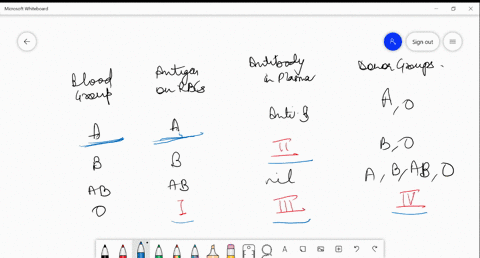 Microsoft Whiteboard
Sign out
Blood Group Antigen on RBCs Antibody in Plasma Donor Groups.
A A Anti B A, O
B B II B, O
AB AB nil A, B, AB, O
O I III IV